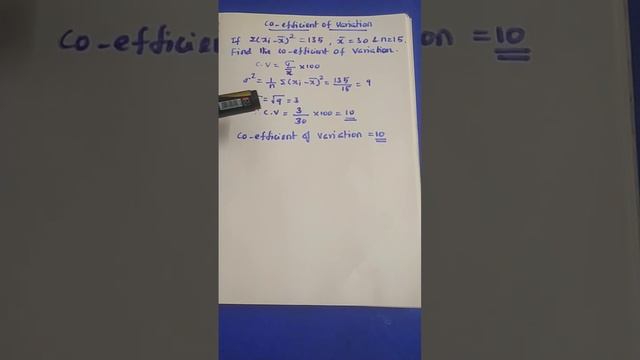 Co-efficient of Variation
If Σ(xi-x̄)² = 135, x̄ = 30 & n=15.
Find the co-efficient of Variation.
C.V = σ/x̄ ×100
σ² = 1/n Σ(xi-x̄)² = 135/15 = 9
= √9 = 3
C.V = 3/30 ×100 = 10
Co-efficient of Variation = 10